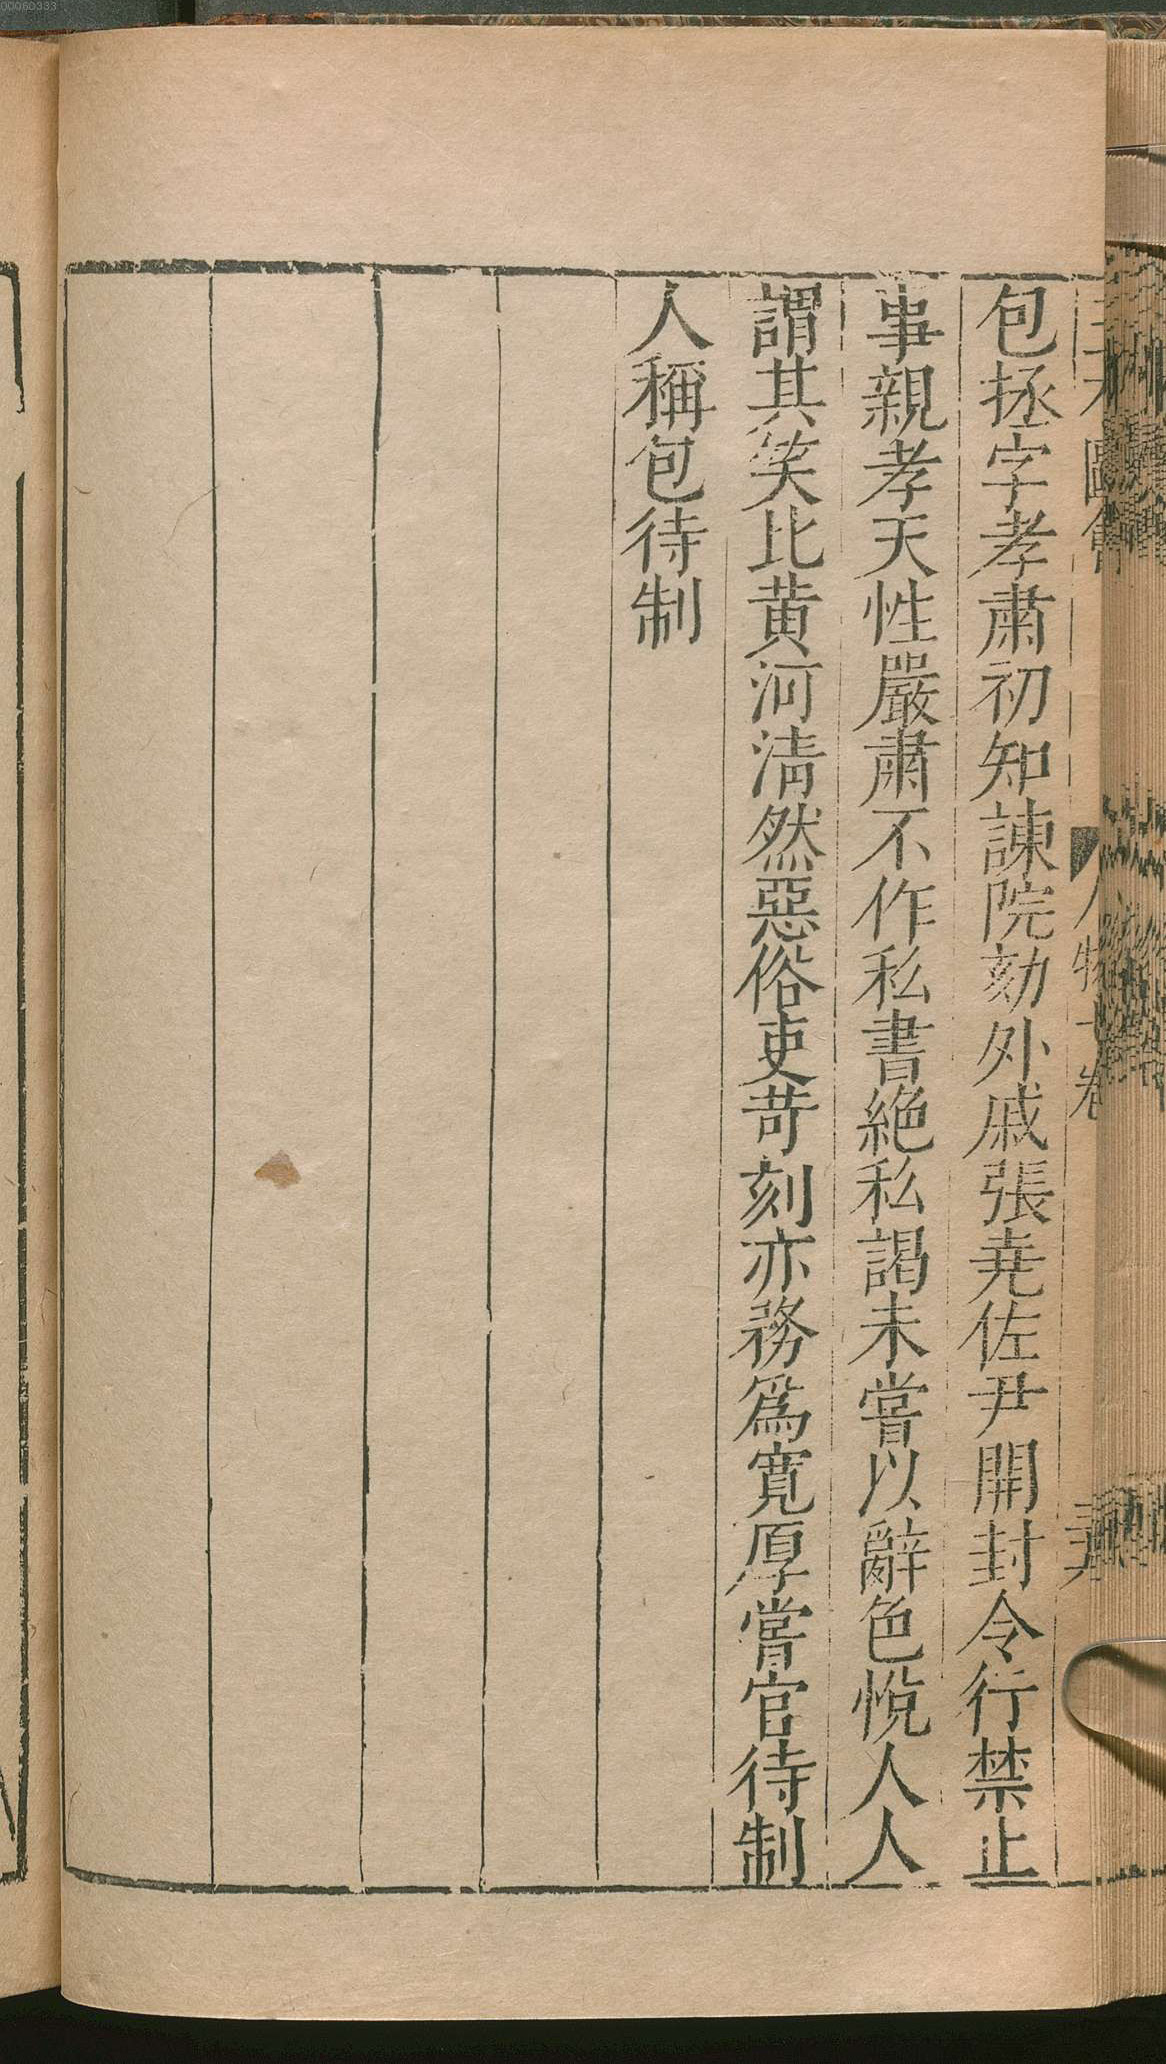 00060333
包拯字孝肅初知諫院劾外戚張堯佐尹開封令行禁止
事親孝天性嚴肅不作私書絶私謁未嘗以辭色悅人人
謂其笑比黄河清然惡俗吏苛刻亦務爲寬厚嘗官待制
人稱包待制